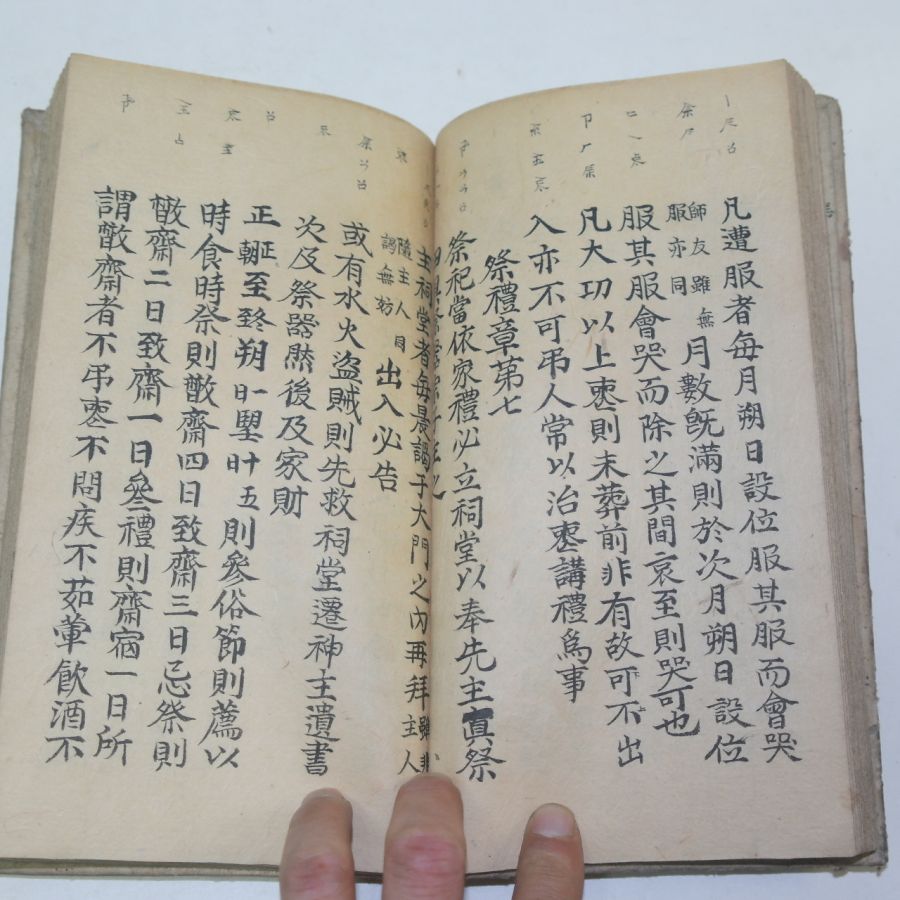 凡遭服者每月朔日設位服其服而會哭
師友雖無
服亦同
月數旣滿則於次月朔日設位
服其服會哭而除之其間哀至則哭可也
凡大功以上喪則未葬前非有故可不出
入亦不可弔人常以治喪講禮爲事
祭禮章第七
祭祀當依家禮必立祠堂以奉先主寘祭
田具祭器宗子主之
主祠堂者每晨謁于大門之內再拜雖非主人
隨主人同
謁無妨
出入必告
或有水火盜賊則先救祠堂遷神主遺書
次及祭器然後及家財
正朝正至冬朔日一望日十五則參俗節則薦以
時食時祭則散齋四日致齋三日忌祭則
散齋二日致齋一日參禮則齋宿一日所
謂散齋者不弔喪不問疾不茹葷飮酒不